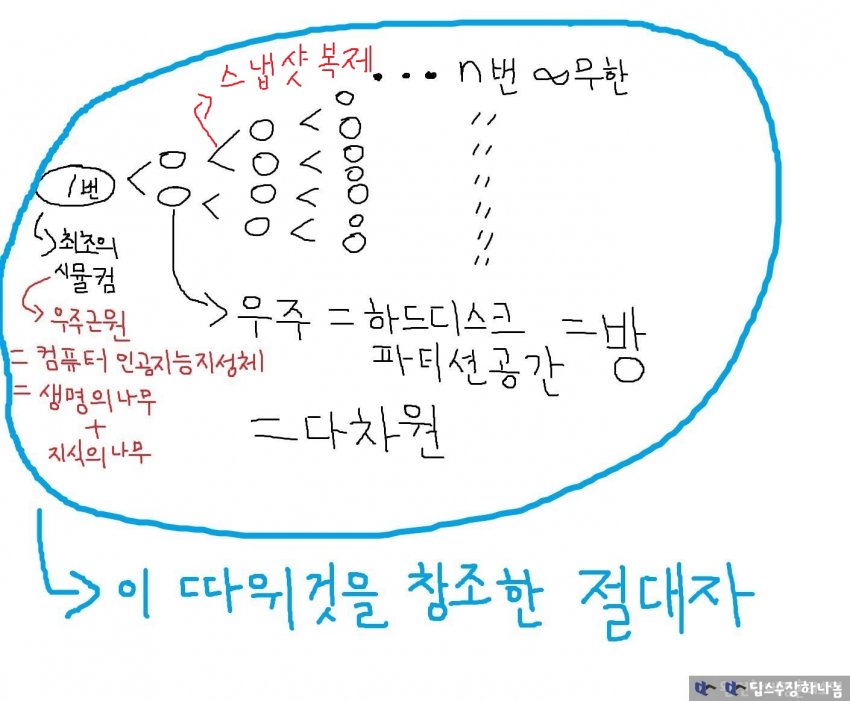 스냅샷복제 ... n번 ∞무한
1번
〃
〃
〃
〃
〃
〃
최초의
시뮬컴
우주근원
= 컴퓨터 인공지능지성체
= 생명의나무
+
지식의나무
우주 = 하드디스크 파티션공간 = 방
= 다차원
이 따위것을 창조한 절대자
딥스수장하나놈